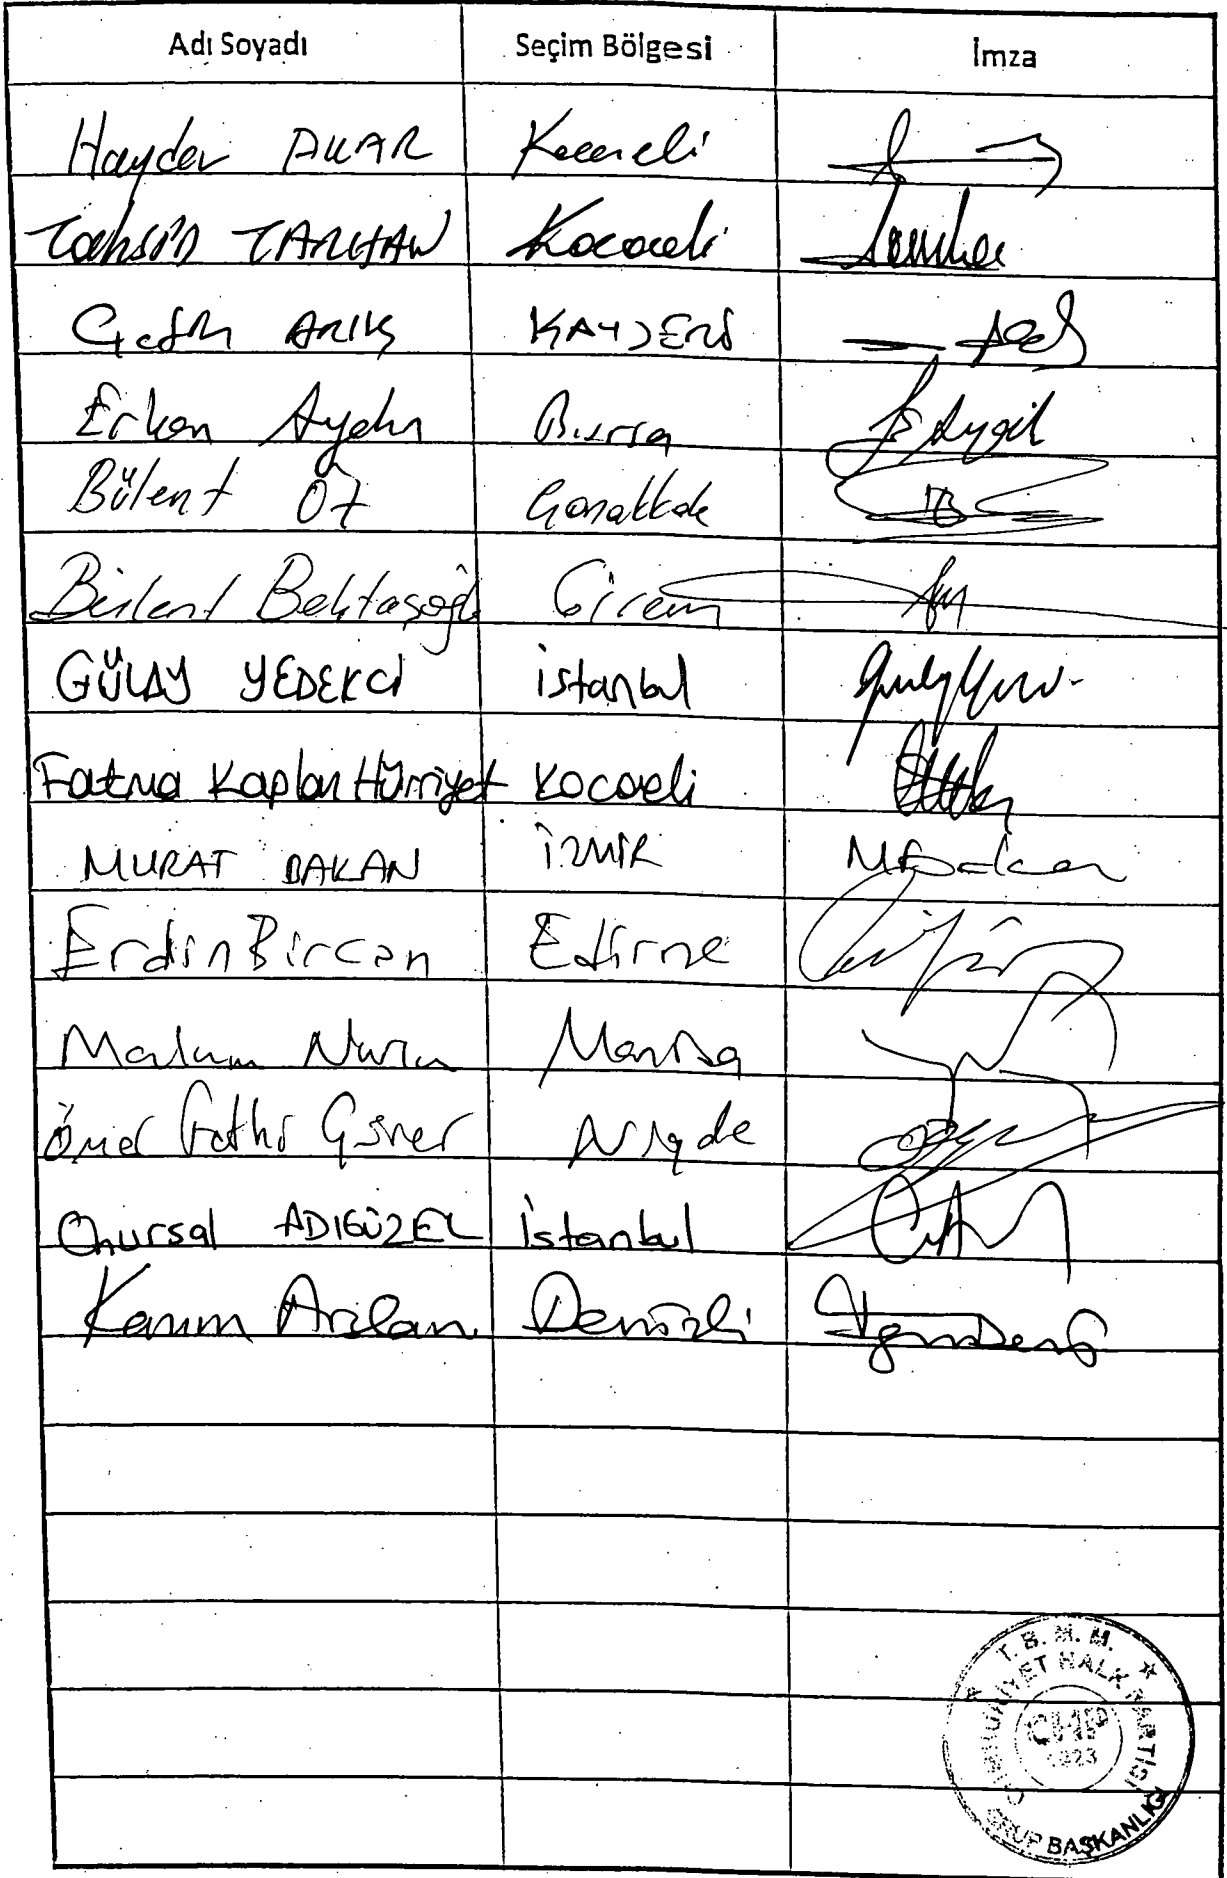 Adı Soyadı Seçim Bölgesi İmza
Haydar AKAR Kocaeli
Tahsin TARHAN Kocaeli
Çetin ARIK KAYSERİ
Erkan Aydın Bursa
Bülent Öz Çanakkale
Bülent Bektaşoğlu Giresun
GÜLAY YEDEKCİ İstanbul
Fatma Kaplan Hürriyet Kocaeli
MURAT BAKAN İZMİR
Erdin Bircan Edirne
Mazlum Nurlu Manisa
Ömer Fethi Gürer Niğde
Onursal ADIGÜZEL İstanbul
Kazım Arslan Denizli
T.B.M.M.
CUMHURİYET HALK PARTİSİ
CHP
1923
GRUP BAŞKANLIĞI